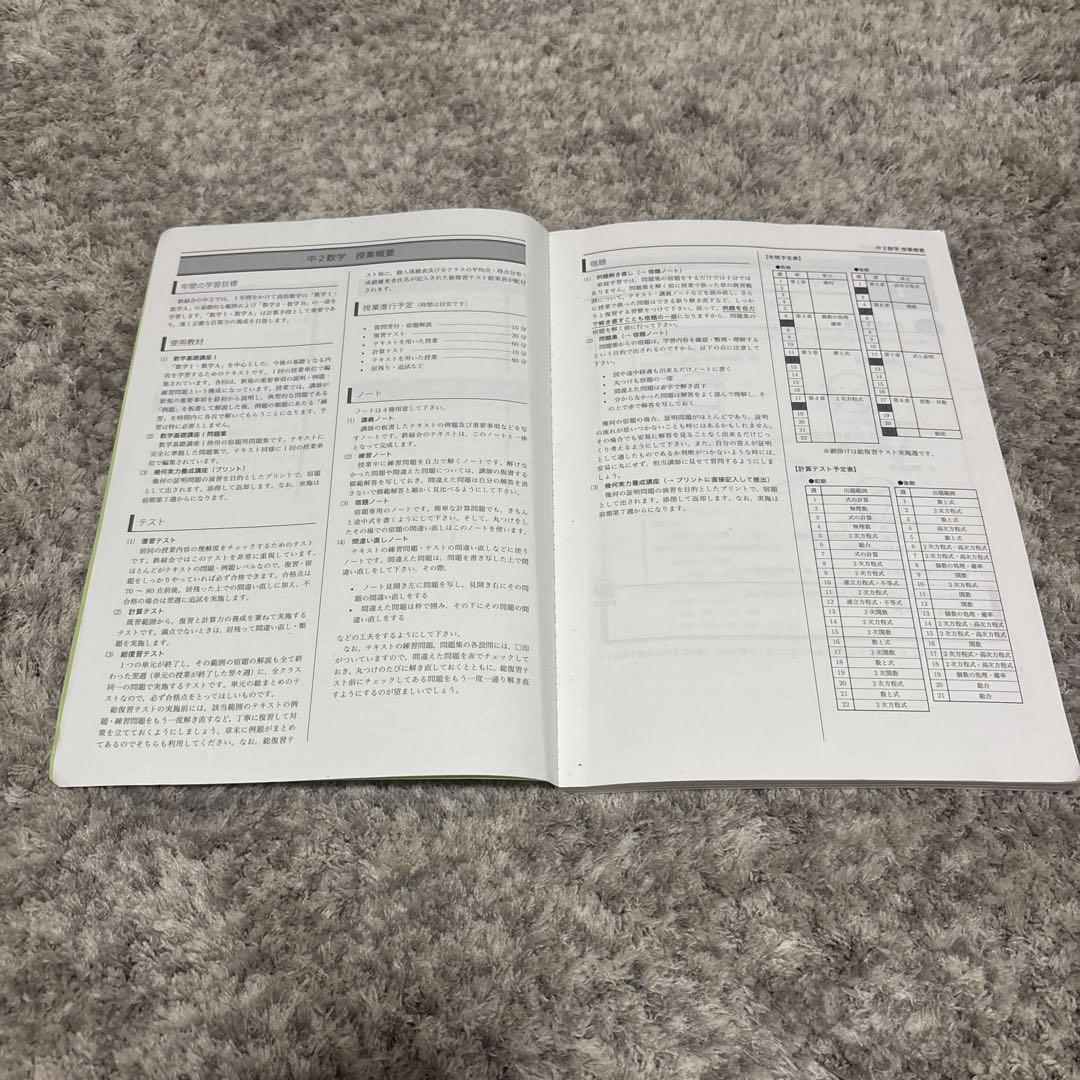 中2数学 授業概要
年間の学習目標
鉄緑会の中2では、1年間をかけて高校数学の「数学Ⅰ・
数学A」の基礎的な範囲および「数学Ⅱ・数学B」の一部を
学習します。「数学Ⅰ・数学A」は計算手段として重要であ
り、速く正確な計算力の養成を目指します。
使用教材
(1) 数学基礎講座Ⅰ
「数学Ⅰ・数学A」を中心とした、今後の基礎となる内
容を学習するためのテキストです。1回の授業単位で編
集されています。各回は、新規の重要事項の説明・例題・
練習問題という構成になっています。授業では、講師が
新規の重要事項を最初から説明し、典型的な問題である
「例題」を板書して解説した後、例題の類題にあたる「練
習」を時間内に各自で解いてもらうことになります。予
習は特に必要としません。
(2) 数学基礎講座Ⅰ問題集
数学基礎講座Ⅰ併用の宿題用問題集です。テキストに
完全に準拠した問題集で、テキスト同様に1回の授業単
位で編集されています。
(3) 幾何実力養成講座(プリント)
幾何の証明問題の演習を目的としたプリントで、宿題
として出されます。添削して返却します。なお、実施は
前期第7週からになります。
テスト
(1) 復習テスト
前回の授業内容の理解度をチェックするためのテスト
です。鉄緑会ではこのテストを非常に重視しています。
ほとんどがテキストの問題・例題レベルなので、復習・宿
題をしっかりやっていれば必ず合格できます。合格点は
70 ～ 80 点前後。居残った上での間違い直しに加え、不
合格の場合は翌週に追試を実施します。
(2) 計算テスト
既習範囲から、復習と計算力の養成を兼ねて実施する
テストです。満点でないときは、居残って間違い直し・類
題を実施します。
(3) 総復習テスト
1つの単元が終了し、その範囲の宿題の解説も全て終
わった翌週(単元の授業が終了した翌々週)に、全クラス
同一の問題で実施するテストです。単元の総まとめのテ
ストなので、必ず合格点をとってほしいものです。
総復習テストの実施前には、該当範囲のテキストの例
題・練習問題をもう一度解き直すなど、丁寧に復習して対
策を立てておくようにしましょう。章末に例題がまとめ
てあるのでそちらも利用してください。なお、総復習テ
スト毎に、個人成績表及び全クラスの平均点・得点分布・
成績優秀者氏名が記入された総復習テスト結果表が配付
されます。
授業進行予定(時間は目安です)
• 質問受付・宿題解説 10 分
• 復習テスト 20 分
• テキストを用いた授業 60 分
• 計算テスト 10 分
• テキストを用いた授業 80 分
• 居残り・追試など
ノート
ノートは4冊用意して下さい。
(1) 講義ノート
講師の板書したテキストの例題及び重要事項などを写
すノートです。鉄緑会のテキストは、このノートと一体
となって完成します。
(2) 練習ノート
授業中に練習問題を自力で解くノートです。解けな
かった問題や間違えた問題については、講師の板書する
模範解答を写しておき、間違えた問題は自分の解答を消
さないで模範解答と細かく見比べるようにして下さい。
(3) 宿題ノート
宿題専用のノートです。簡単な計算問題でも、きちん
と途中式を書くようにして下さい。そして、丸つけをし
たその場での宿題の間違い直しはこのノートを使います。
(4) 間違い直しノート
テキストの練習問題・テストの間違い直しなどに使う
ノートです。間違えた問題は、問題を書き写した上で間
違い直しをして下さい。その際、
• ノート見開き左に問題を写し、見開き右にその問
題の間違い直しをする
• 間違えた問題は枠で囲み、その下にその問題の間
違い直しをする
などの工夫をするようにして下さい。
なお、テキストの練習問題、問題集の各設問には、□印
がついていますので、間違えた問題を赤でチェックして
おき、丸つけのたびに解き直しておくとともに、総復習テ
スト前にチェックしてある問題をもう一度一通り解き直
すようにするのが望ましいでしょう。
中2数学 授業概要
宿題
(1) 例題解き直し(→ 宿題ノート)
家庭学習では、問題集の宿題をするだけでは十分では
ありません。問題集を解く前に授業で扱った章の既習範
囲について、テキスト・講義ノートなどを読み直し、さら
に授業で扱った問題はできる限り解き直すなど、しっか
りと復習する習慣をつけて下さい。従って、例題を自力
で解き直すことも宿題の一部になりますから、問題集の
宿題を解く前に行って下さい。
(2) 問題集(→ 宿題ノート)
問題集からの宿題は、学習内容を確認・整理・理解する
という目的で出されるのですから、以下の点に注意して
下さい。
• 図や途中経過も出来るだけノートに書く
• 丸つけも宿題の一部
• 間違えた問題は赤字で解き直す
• 分からなかった問題は解答をよく読んで理解し、そ
の上で赤で解答を写しておく
幾何の宿題の場合、証明問題がほとんどであり、証明
の流れが思いつかないことも時にはあるかもしれません。
その場合でも安易に解答を見ることなく出来るだけじっ
くり考えるようにして下さい。また、自分の答えが証明
として通じたものであるか判断がつかないような時には、
安易に丸にせず、担当講師に見せて質問するようにしま
しょう。
(3) 幾何実力養成講座(→ プリントに直接記入して提出)
幾何の証明問題の演習を目的としたプリントで、宿題
として出されます。添削して返却します。なお、実施は
前期第7週からになります。
【年間予定表】
●前期
週 章 単元
1 第1章 幾何
2
3
4
5
6 第2章 個数の処理
確率
8
9
10
11 第3章 数と式
12
13
14
15
16
17 第4章 2次方程式
18
19
20
21
22
●後期
週 章 単元
1 第5章 高次方程式
3
4 第6章 関数
5
6
7
8
9
10
11 第7章 式と証明
13
14
15
16
17 第8章 指数・対数
18
19
20
総括
※網掛けは総復習テスト実施週です。
【計算テスト予定表】
●前期
週 出題範囲
1 式の計算
2 無理数
3 式の計算
4 無理数
5 2次方程式
6 総合
7 式の計算
8 2次方程式
9 2次方程式
10 連立方程式・不等式
11 2次方程式
12 連立方程式・不等式
13 2次関数
14 2次方程式
15 2次関数
16 数と式
17 2次方程式
18 数と式
19 2次関数
20 2次方程式
21 数と式
22 2次方程式
●後期
週 出題範囲
1 数と式
2 2次方程式
3 数と式
4 高次方程式
5 数と式
6 2次方程式・高次方程式
7 2次方程式・高次方程式
8 個数の処理・確率
9 関数
10 2次方程式
11 関数
12 関数
13 個数の処理・確率
14 2次方程式・高次方程式
15 2次方程式・高次方程式
16 関数
17 2次方程式・高次方程式
18 2次方程式・高次方程式
19 個数の処理・確率
20 総合
21 総合